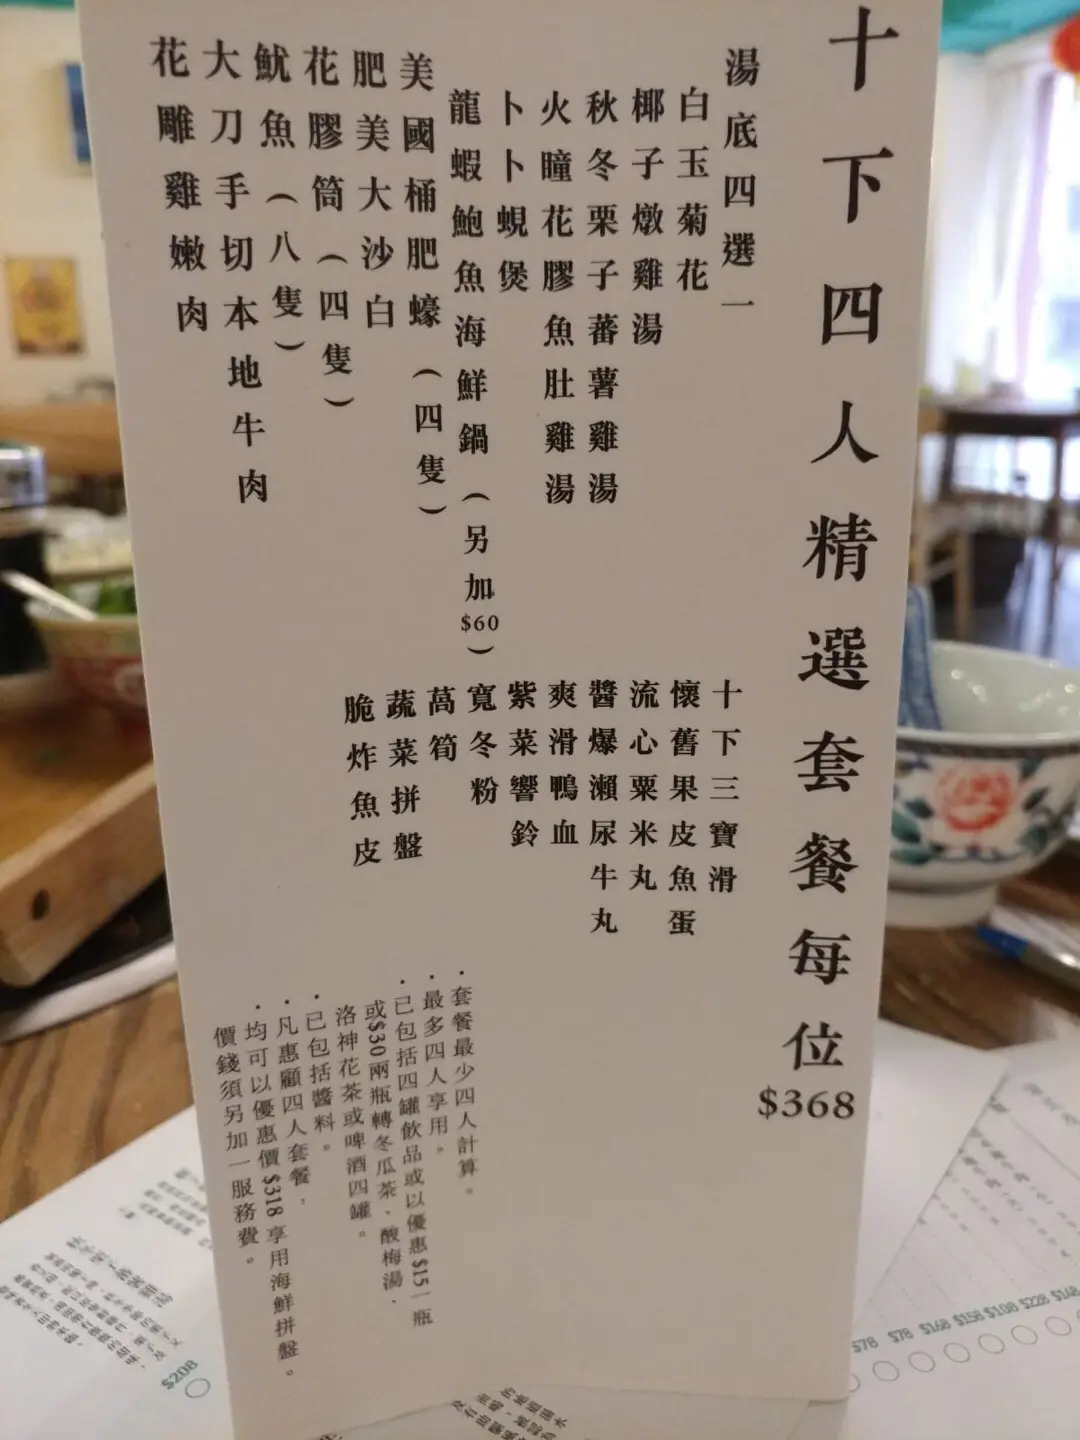 十下四人精選套餐每位
$368
湯底四選一
白玉菊花
椰子燉雞湯
秋冬栗子蕃薯雞湯
火瞳花膠魚肚雞湯
卜卜蜆煲
龍蝦鮑魚海鮮鍋（另加$60）
美國桶肥蠔（四隻）
肥美大沙白
花膠筒（四隻）
魷魚（八隻）
大刀手切本地牛肉
花雕雞嫩肉
十下三寶滑
懷舊果皮魚蛋
流心粟米丸
醬爆瀨尿牛丸
爽滑鴨血
紫菜響鈴
寬冬粉
萵筍
蔬菜拼盤
脆炸魚皮
·套餐最少四人計算。
·最多四人享用。
·已包括四罐飲品或以優惠$15一瓶
或$30兩瓶轉冬瓜茶、酸梅湯、
洛神花茶或啤酒四罐。
·已包括醬料。
·凡惠顧四人套餐，
·均可以優惠價$318享用海鮮拼盤。
價錢須另加一服務費。
$208
$78 $78 $168 $158 $108 $228 $148